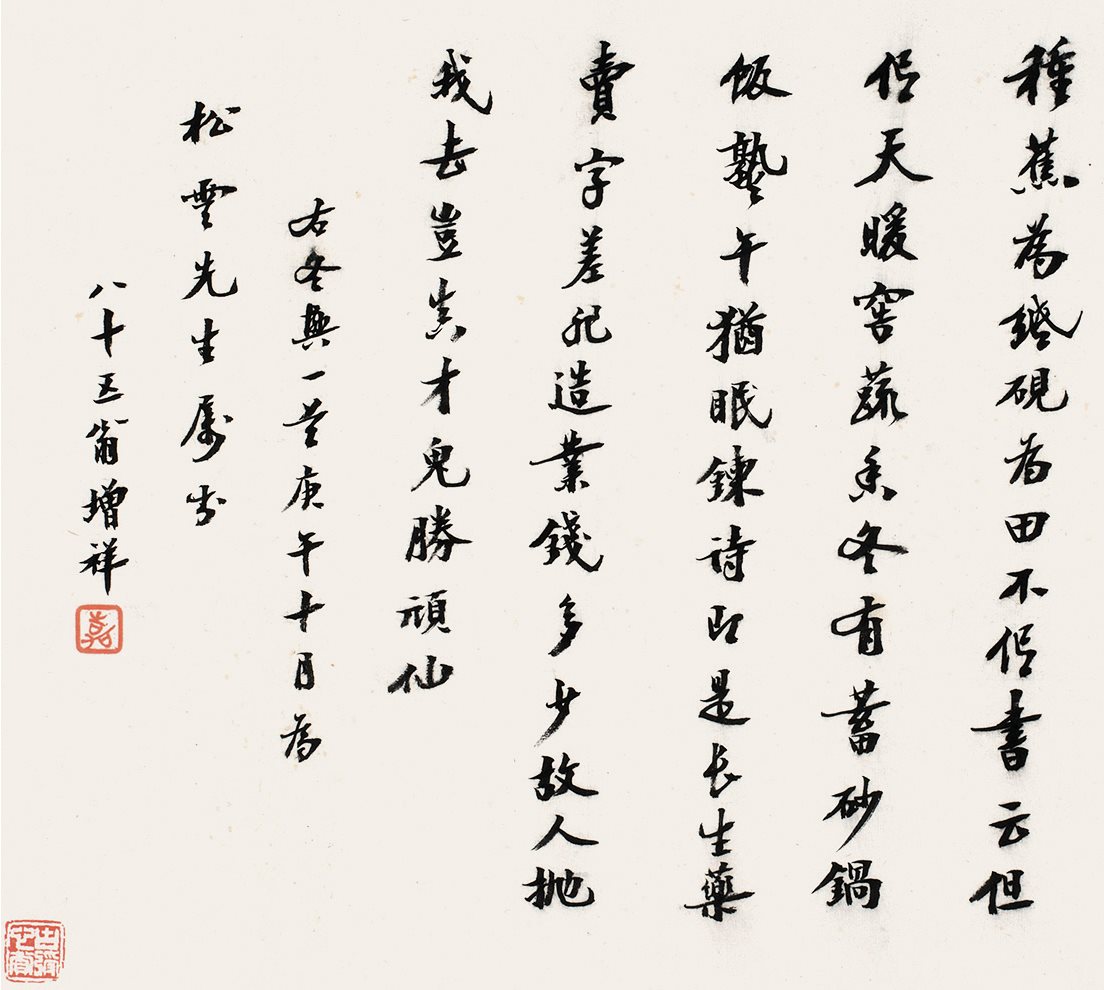 種蕉為硯為田不信書云但
信天暖窖蔬香冬有蓄砂鍋
飯熟午猶眠鍊詩即是長生藥
賣字差造業錢多少故人拋
我去豈真才鬼勝頑仙
右冬興一首庚午十月為
松雲先生屬書
八十五翁增祥